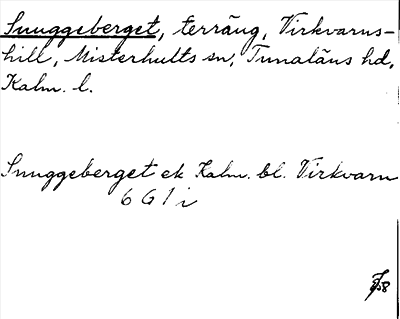 Snuggeberget, terräng, Virkvarns-
hill, Misterhults sn, Tunaläns hd,
Kalm. l.
Snuggeberget ek Kalm. bl. Virkvarn
6 G 1 i